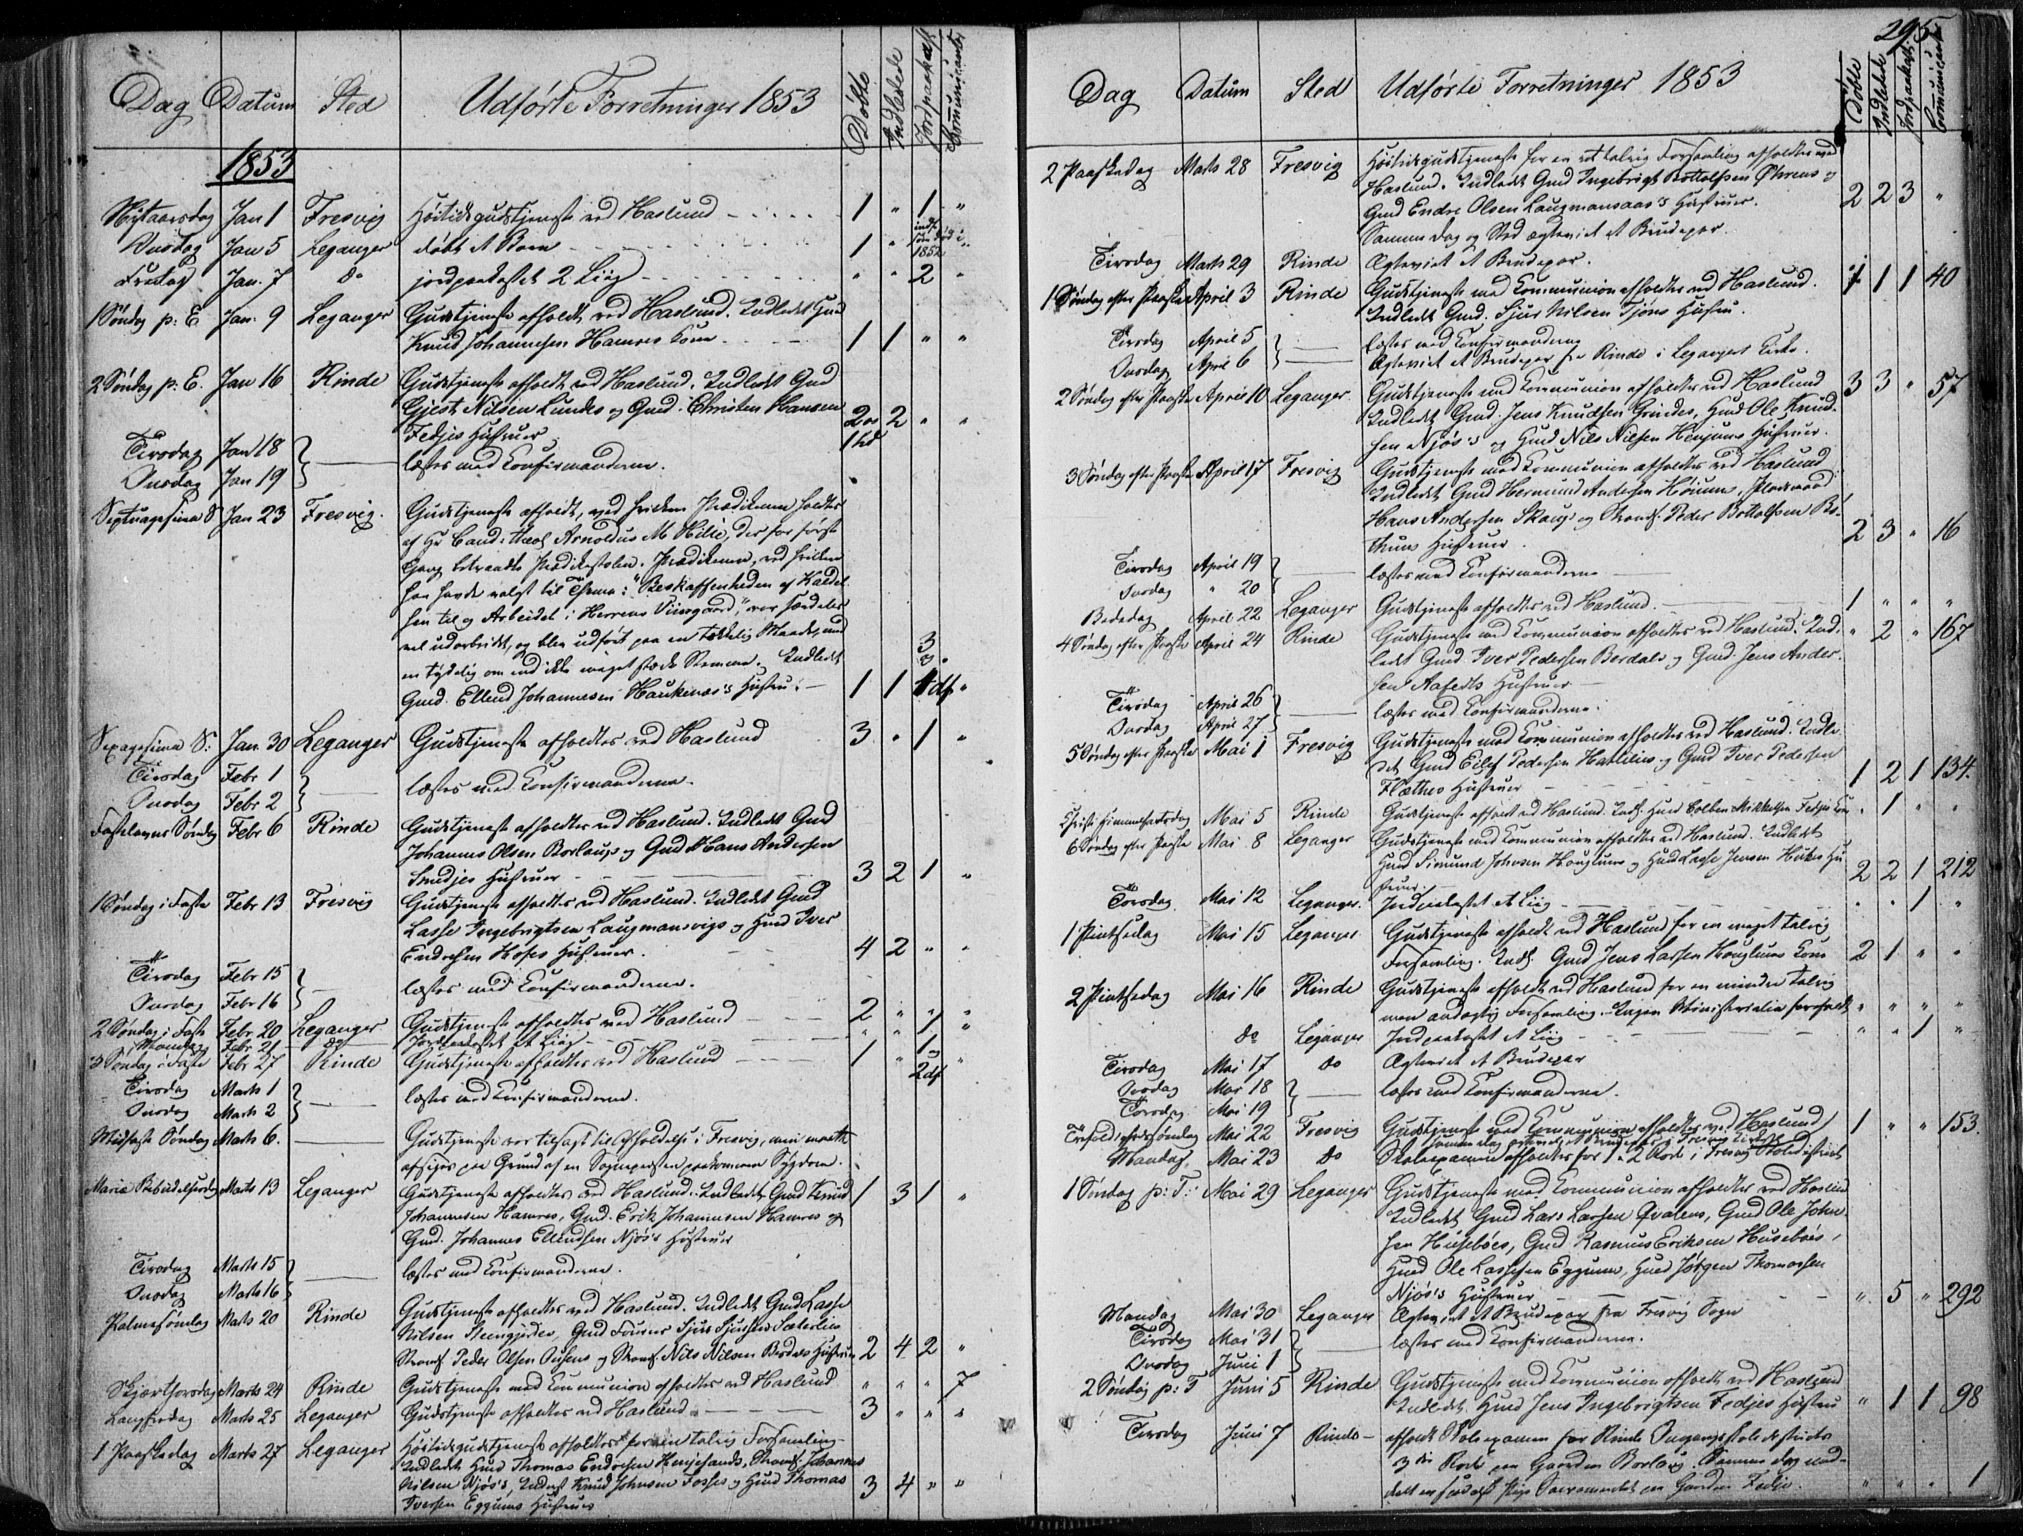 295
Dag Datum Sted Udførte Forretninger 1853 Døbte Indledede Jordpaakast Communicanter
1853
Nytaarsdag Jan 1 Fresvig Høitidsgudstjeneste ved Haslund 1 " 1 "
Onsdag Jan 5 Leganger døbt et Barn 1 "
1852
Fredag Jan. 7 do jordpaakastet 2 Liig " " 2 "
1 Søndag p: E Jan. 9 Leganger Gudstjeneste afholdt ved Haslund. Indledet Gmd
Knud Johannesen Hamres Kone 1 1 " "
2 Søndag p: E. Jan 16 Rinde Gudstjeneste afholdt ved Haslund. Indledet Gmd
Gjest Nilsen Lunds og Gmd. Christen Hansen
Fedjes Hustruer 2 " "
Tirsdag Jan 18
læstes med Confirmanderne.
Onsdag Jan 19
Septuagesima S Jan 23 Fresvig. Gudstjeneste afholdt, ved hvilken Prædikenen holdtes
af Hr Cand: theol Arnoldus M Hille, der for første
Gang betraadte Prædikestolen. Prædikenen, ved hvilken
han havde valgt til Thema: "Beskaffenheden af Kaldel-
sen til og Arbeidet i Herrens Viingaard", var særdeles
vel udarbeidet, og blev udført paa en Maade, med
en tydelig om end ikke meget stærk Stemme. Indledet
Gmd. Ellend Johannesen Haukenæs's Hustru. 1 1 1 df "
Sexagesima S: Jan. 30 Leganger Gudstjeneste afholdtes ved Haslund 3 " 1 "
Tirsdag Febr 1
læstes med Confirmanderne.
Onsdag Febr 2
Fastelavns Søndag Febr 6 Rinde Gudstjeneste afholdtes ved Haslund. Indledet Gmd
Johannes Olsen Borlaugs og Gmd Hans Andersen
Smedjes Hustruer 3 2 1 "
1 Søndag i Faste Febr 13 Fresvig Gudstjeneste afholdtes ved Haslund. Indledet Gmd
Lasse Ingebrigtsen Laugmansvigs og Hmd Iver
Endresen Hofes Hustruer. 4 2 " "
Tirsdag Febr 15
læstes med Confirmanderne.
Onsdag Febr 16
2 Søndag i Faste Febr 20 Leganger Gudstjeneste afholdtes ved Haslund 2 " " "
Mandag Febr 21 do Jordpaakastet et Liig " " 1 "
3 Søndag i Faste Febr 27 Rinde Gudstjeneste afholdtes ved Haslund 1 " 2 df "
Tirsdag Marts 1
læstes med Confirmanderne.
Onsdag Marts 2
Midfaste Søndag Marts 6. Gudstjeneste var tilsagt til Afholdelse i Fresvig, men maatte
afsiges paa Grund af en Sognepræsten paakommen Sygdom.
Mariæ Bebudelsesdag Marts 13 Leganger Gudstjeneste afholdtes ved Haslund. Indledet Gmd Knud 1 3 1 "
Johannesen Hamres, Gmd. Erik Johannesen Hamres og
Gmd. Johannes Ellendsen Njøs's Hustruer
Tirsdag Marts 15
læstes med Confirmanderne.
Onsdag Marts 16
Palmesøndag Marts 20 Rinde Gudstjeneste afholdtes ved Haslund. Indledet Gmd Lasse
Nilsen Steengjerdes, Gmd Sjur Sjursen
Strands. Peder Olsen og Strands. Nils Nilsen Hustruer 2 4 2 "
Skjærthorsdag Marts 24 Rinde Gudstjeneste med Communion afholdtes ved Haslund " " " 7
Langfredag Marts 25 Leganger Gudstjeneste afholdtes ved Haslund. 3 " " "
1 Paaskedag Marts 27 Leganger Høitidsgudstjeneste afholdtes for en talrig Forsamling
Indledet Hmd Thomas Endresen Henjesands, Strands. Johannes
Nilsen Njøs's, Knud Johnsen Fosses og Hmd Thomas
Iversen Eggums Hustruer 3 4 " "
Dag Datum Sted Udførte Forretninger 1853 Døbte Indledede Jordpaakast Communicanter
2 Paaskedag Marts 28 Fresvig Høitidsgudstjeneste for en ret talrig Forsamling afholdtes ved
Haslund. Indledet Gmd Ingebrigt Bottolfsen Øhrens og
Gmd Endre Olsen Laugmansaas's Hustruer. 2 2 3 "
Samme Dag og Sted ægteviet et Brudepar.
Tirsdag Marts 29 Rinde Ægteviet et Brudepar.
1 Søndag efter Paaske April 3 Rinde Gudstjeneste med Communion afholdtes ved Haslund. 1 1 1 40
Indledet Gmd. Sjur Nilsen Tjøns Hustru.
Tirsdag April 5 læstes med Confirmanderne
Onsdag April 6 Ægteviet et Brudepar fra Rinde i Leganger Kirke.
2 Søndag efter Paaske April 10 Leganger Gudstjeneste med Communion afholdtes ved Haslund 3 3 " 57
Indledet Gmd. Jens Knudsen Grindes, Hmd Ole Knud-
sen Njøs's og Hmd Nils Nilsen Henjums Hustruer.
3 Søndag efter Paaske April 17 Fresvig Gudstjeneste med Communion afholdtes ved Haslund
Indledet Gmd Hermund Andersen Høiums, Pladsmand
Hans Andersen Skaugs og Strands. Peder Bottolfsen Bo-
thuns Hustruer. 2 3 " 16
Tirsdag April 19
læstes med Confirmanderne
Onsdag " 20
Bededag April 22 Leganger Gudstjeneste afholdtes ved Haslund. 1 " " "
4 Søndag efter Paaske April 24 Rinde Gudstjeneste med Communion afholdtes ved Haslund. Ind- " 2 " 167
ledet Gmd Iver Pedersen Berdals og Gmd. Jens Ander-
sen Aafedts Hustruer
Tirsdag April 26
læstes med Confirmanderne.
Onsdag April 27
5 Søndag efter Paaske Mai 1 Fresvig Gudstjeneste med Communion afholdtes ved Haslund. Indle-
det Gmd Eilef Pedersen Hatlelies og Gmd Iver Pedersen
Flæthes Hustruer 1 2 1 134.
Christi Himmelfartsdag Mai 5 Rinde Gudstjeneste afholdt ved Haslund. Indl. Hmd Colben Mikkelsen Fedjes Kone " 1 " "
6 Søndag efter Paaske Mai 8 Leganger Gudstjeneste med Communion afholdtes ved Haslund. Indledet
Hmd Simund Johnsen Hauglums og Hmd Lasse Jensen Hu-
struer. 2 2 1 212
Torsdag Mai 12 Leganger. Jordpaakastet et Liig " " 1 "
1 Pintsedag Mai 15 Leganger Gudstjeneste afholdt ved Haslund for en meget talrig
Forsamling. Indl. Gmd Jens Larsen Hauglums Kone 2 1 " "
2 Pintsedag Mai 16 Rinde Gudstjeneste afholdt ved Haslund for en mindre talrig
men andægtig Forsamling. Ingen Ministerialia forefaldt " " " "
do Leganger Jordpaakastet et Liig " " 1 "
Tirsdag Mai 17 do Ægteviet et Brudepar
Onsdag Mai 18
læstes med Confirmanderne.
Torsdag Mai 19
Trefoldighedssøndag Mai 22 Fresvig Gudstjeneste med Communion afholdtes ved Haslund 1 " " 153
samme dag ægteviet et Brudepar i Fresvig Kirke
Mandag Mai 23 do Skoleexamen afholdtes for 1 2 Rode i Fresvig Skoledistrict
1 Søndag p: T: Mai 29 Leganger Gudstjeneste med Communion afholdtes ved Haslund
Indledet Gmd Lars Larsen Qvalens, Gmd Ole John-
sen Husebøes, Gmd Rasmus Eriksen Husebøes,
Hmd Ole Lassesen Eggums, Hmd Jørgen Thomassen
Njøs's Hustruer " 5 " 292
Mandag Mai 30 Leganger Ægteviet et Brudepar fra Fresvig Sogn
Tirsdag Mai 31
læstes med Confirmanderne.
Onsdag Juni 1
2 Søndag p: T Juni 5 Rinde Gudstjeneste med Communion afholdt ved Haslund
Indledet Hmd Jens Ingebrigtsen Fedjes Hustru " 1 1 98
Tirsdag Juni 7 Rinde afholdt Skoleexamen for Rinde Omgangsskoledistricts
3die Rode paa Gaarden Borlaug. Samme dag med-
delt en Syg Sacramentet paa Gaarden Fedje. " " " 1